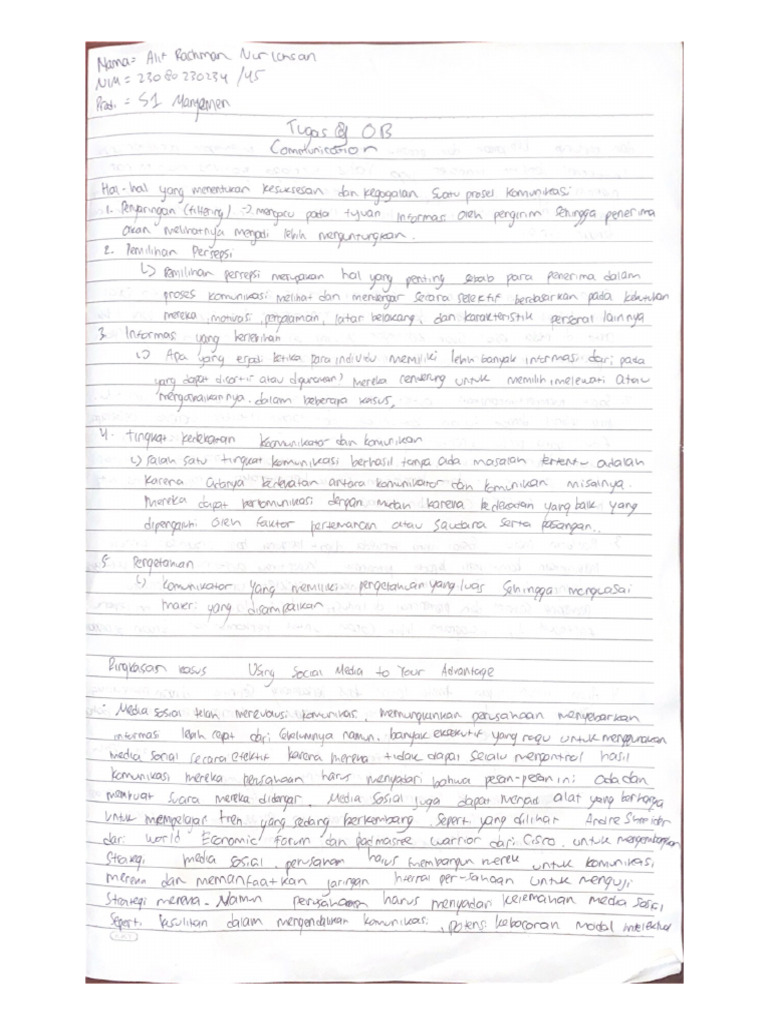 Nama = Alif Rachman Nur Ichsan
NIM = 23080230234 /45
Prodi = S1 Manajemen
Tugas OB
Communication
Hal-hal yang menentukan kesuksesan dan kegagalan suatu proses komunikasi
1. Penyaringan (filtering) -> mengacu pada tujuan informasi oleh pengirim sehingga penerima
akan melihatnya menjadi lebih menguntungkan.
2. Pemilihan Persepsi
↳ Pemilihan persepsi merupakan hal yang penting sebab para penerima dalam
proses komunikasi melihat dan mendengar secara selektif berdasarkan pada kebutuhan
mereka, motivasi, pengalaman, latar belakang, dan karakteristik personal lainnya
3. Informasi yang berlebihan
↳ Apa yang terjadi ketika para individu memiliki lebih banyak informasi dari pada
yang dapat disortir atau digunakan? mereka cenderung untuk memilih, melewati atau
mengabaikannya. dalam beberapa kasus,
4. Tingkat kedekatan komunikator dan komunikan
↳ salah satu tingkat komunikasi berhasil tanpa ada masalah tertentu adalah
karena adanya kedekatan antara komunikator dan komunikan misalnya.
Mereka dapat berkomunikasi dengan mudah karena kedekatan yang baik yang
dipengaruhi oleh faktor pertemanan atau saudara serta pasangan..
5. Pengetahuan
↳ komunikator yang memiliki pengetahuan yang luas sehingga menguasai
materi yang disampaikan
Ringkasan kasus Using Social Media to Your Advantage
· Media sosial telah merevolusi komunikasi, memungkinkan perusahaan menyebarkan
informasi lebih cepat dari sebelumnya namun, banyak eksekutif yang ragu untuk menggunakan
media sosial secara efektif karena mereka tidak dapat selalu mengontrol hasil
komunikasi mereka perusahaan harus menyadari bahwa pesan-pesan ini ada dan
membuat suara mereka didengar. Media sosial juga dapat menjadi alat yang berharga
untuk mempelajari tren yang sedang berkembang. Seperti yang dilihat Andre Schneider
dari World Economic Forum dan padmasree warrior dari Cisco. untuk mengembangkan
strategi media sosial, perusahaan harus membangun merek untuk komunikasi
mereka dan memanfaatkan jaringan internal perusahaan untuk menguji
strategi mereka. Namun perusahaan harus menyadari kelemahan media sosial
seperti kesulitan dalam mengendalikan komunikasi, potensi kebocoran modal intelektual